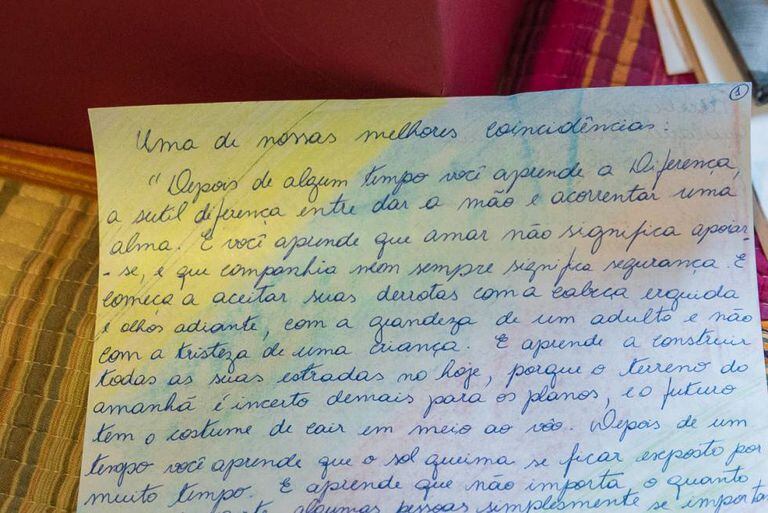 1
Uma de nossas melhores coincidências:
"Depois de algum tempo você aprende a Diferença,
a sutil diferença entre dar a mão e acorrentar uma
alma. E você aprende que amar não significa apoiar-
-se, e que companhia nem sempre significa segurança. E
começa a aceitar suas derrotas com a cabeça erguida
e olhos adiante, com a grandeza de um adulto e não
com a tristeza de uma criança. E aprende a construir
todas as suas estradas no hoje, porque o terreno do
amanhã é incerto demais para os planos, e o futuro
tem o costume de cair em meio ao vôo. Depois de um
tempo você aprende que o sol queima se ficar exposto por
muito tempo. E aprende que não importa o quanto
algumas pessoas simplesmente se